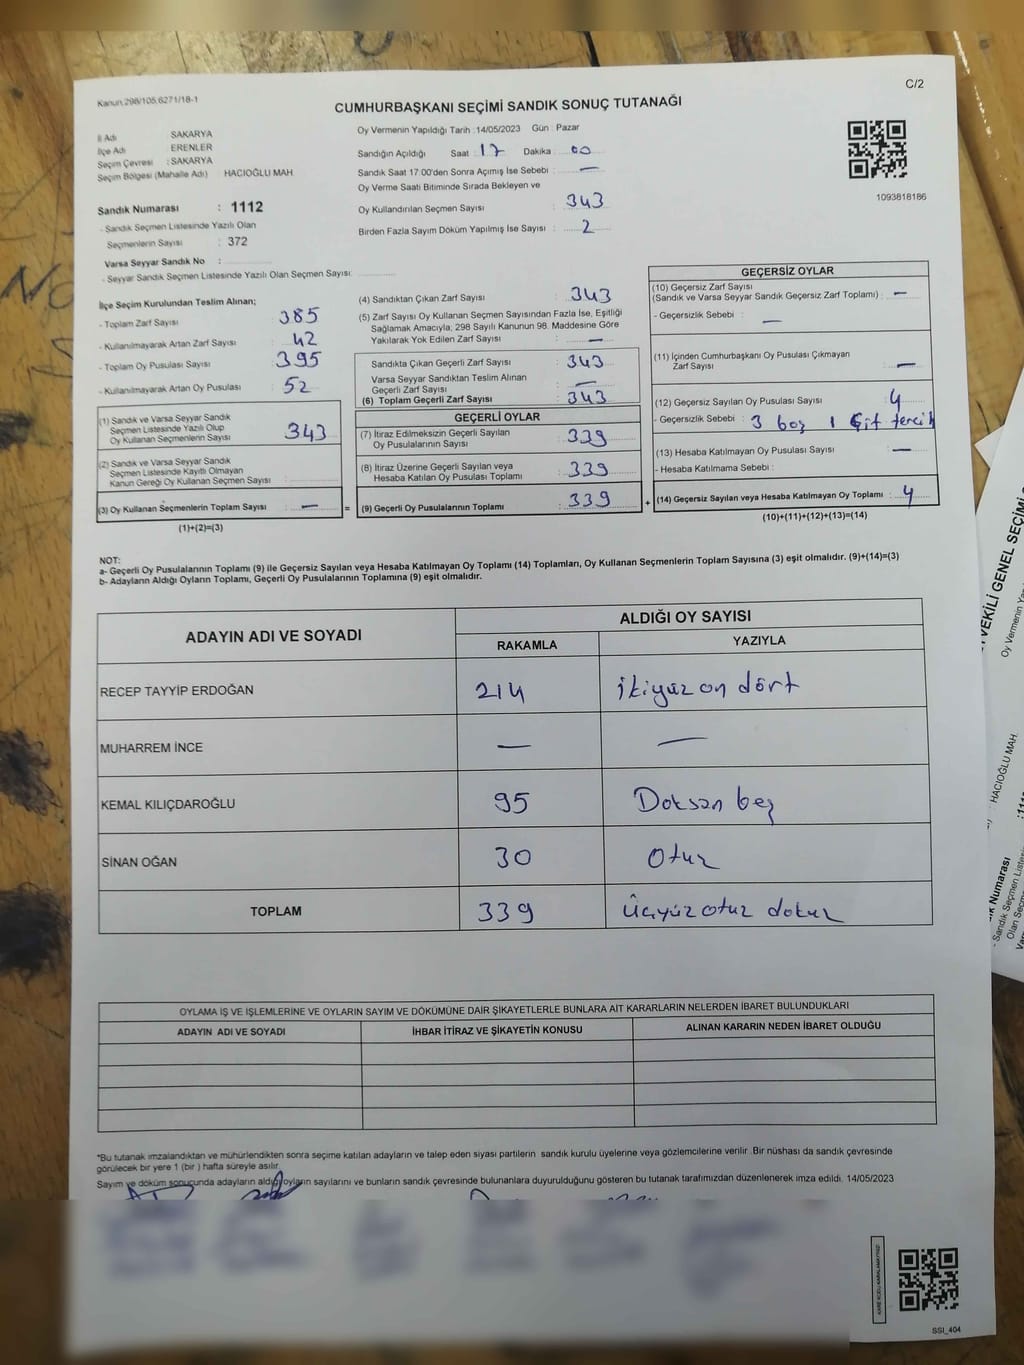 Kanun.298/105,6271/18-1
C/2
CUMHURBAŞKANI SEÇİMİ SANDIK SONUÇ TUTANAĞI
İl Adı SAKARYA
İlçe Adı ERENLER
Seçim Çevresi : SAKARYA
Seçim Bölgesi (Mahalle Adı) HACIOĞLU MAH.
Sandık Numarası : 1112
- Sandık Seçmen Listesinde Yazılı Olan
Seçmenlerin Sayısı : 372
Varsa Seyyar Sandık No :
- Seyyar Sandık Seçmen Listesinde Yazılı Olan Seçmen Sayısı:
Oy Vermenin Yapıldığı Tarih : 14/05/2023 Gün : Pazar
Sandığın Açıldığı Saat : 17 Dakika : 00
Sandık Saat 17:00'den Sonra Açılmış İse Sebebi : —
Oy Verme Saati Bitiminde Sırada Bekleyen ve
Oy Kullandırılan Seçmen Sayısı : 343
Birden Fazla Sayım Döküm Yapılmış İse Sayısı : 2
1093818186
İlçe Seçim Kurulundan Teslim Alınan;
- Toplam Zarf Sayısı : 385
- Kullanılmayarak Artan Zarf Sayısı : 42
- Toplam Oy Pusulası Sayısı : 395
- Kullanılmayarak Artan Oy Pusulası : 52
(1) Sandık ve Varsa Seyyar Sandık
Seçmen Listesinde Yazılı Olup
Oy Kullanan Seçmenlerin Sayısı : 343
(2) Sandık ve Varsa Seyyar Sandık
Seçmen Listesinde Kayıtlı Olmayan
Kanun Gereği Oy Kullanan Seçmen Sayısı :
(3) Oy Kullanan Seçmenlerin Toplam Sayısı : — =
(1)+(2)=(3)
(4) Sandıktan Çıkan Zarf Sayısı : 343
(5) Zarf Sayısı Oy Kullanan Seçmen Sayısından Fazla İse, Eşitliği
Sağlamak Amacıyla, 298 Sayılı Kanunun 98. Maddesine Göre
Yakılarak Yok Edilen Zarf Sayısı : —
Sandıkta Çıkan Geçerli Zarf Sayısı : 343
Varsa Seyyar Sandıktan Teslim Alınan
Geçerli Zarf Sayısı : —
(6) Toplam Geçerli Zarf Sayısı : 343
GEÇERLİ OYLAR
(7) İtiraz Edilmeksizin Geçerli Sayılan
Oy Pusulalarının Sayısı : 339
(8) İtiraz Üzerine Geçerli Sayılan veya
Hesaba Katılan Oy Pusulası Toplamı : 339
(9) Geçerli Oy Pusulalarının Toplamı : 339 +
GEÇERSİZ OYLAR
(10) Geçersiz Zarf Sayısı
(Sandık ve Varsa Seyyar Sandık Geçersiz Zarf Toplamı) : —
- Geçersizlik Sebebi : —
(11) İçinden Cumhurbaşkanı Oy Pusulası Çıkmayan
Zarf Sayısı : —
(12) Geçersiz Sayılan Oy Pusulası Sayısı : 4
- Geçersizlik Sebebi : 3 boş 1 Çift tercih
(13) Hesaba Katılmayan Oy Pusulası Sayısı : —
- Hesaba Katılmama Sebebi :
(14) Geçersiz Sayılan veya Hesaba Katılmayan Oy Toplamı : 4
(10)+(11)+(12)+(13)=(14)
NOT:
a- Geçerli Oy Pusulalarının Toplamı (9) ile Geçersiz Sayılan veya Hesaba Katılmayan Oy Toplamı (14) Toplamları, Oy Kullanan Seçmenlerin Toplam Sayısına (3) eşit olmalıdır. (9)+(14)=(3)
b- Adayların Aldığı Oyların Toplamı, Geçerli Oy Pusulalarının Toplamına (9) eşit olmalıdır.
ADAYIN ADI VE SOYADI ALDIĞI OY SAYISI
RAKAMLA YAZIYLA
RECEP TAYYİP ERDOĞAN 214 ikiyüz on dört
MUHARREM İNCE — —
KEMAL KILIÇDAROĞLU 95 Doksan beş
SİNAN OĞAN 30 Otuz
TOPLAM 339 Üçyüz otuz dokuz
OYLAMA İŞ VE İŞLEMLERİNE VE OYLARIN SAYIM VE DÖKÜMÜNE DAİR ŞİKAYETLERLE BUNLARA AİT KARARLARIN NELERDEN İBARET BULUNDUKLARI
ADAYIN ADI VE SOYADI İHBAR İTİRAZ VE ŞİKAYETİN KONUSU ALINAN KARARIN NEDEN İBARET OLDUĞU
*Bu tutanak imzalandıktan ve mühürlendikten sonra seçime katılan adayların ve talep eden siyasi partilerin sandık kurulu üyelerine veya gözlemcilerine verilir. Bir nüshası da sandık çevresinde
görülecek bir yere 1 (bir ) hafta süreyle asılır.
Sayım ve döküm sonucunda adayların aldığı oyların sayılarını ve bunların sandık çevresinde bulunanlara duyurulduğunu gösteren bu tutanak tarafımızdan düzenlenerek imza edildi. 14/05/2023
KARE KODU KARALAMAYINIZ!
SSI_404
VEKİLİ GENEL SEÇİMİ
Oy Vermenin
HACIOĞLU MAH.
Numarası
- Sandık Seçmen